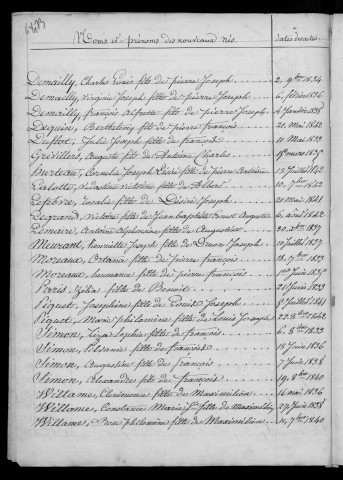 Noms et prénoms des nouveaux nés. Dates des actes.
Demailly, Charles Louis fils de pierre Joseph. 2. 9bre 1824
Demailly, Virginie Joseph fille de pierre Joseph 6 février 1836
Demailly, françois Alfred fils de pierre Joseph. 4 Janvier 1838
Dequire, Barthélemy fils de pierre françois 21 Mai 1842
Duflot, Julie Joseph fille de françois 11 Mai 1833
Grévillers, Auguste fils de Antoine Charles. 15 mars 1835
Burteau, Cornélie Joseph Désiré fils de pierre Antoine 13 Juillet 1842
Larlotte, Sébastien Victoire fils de Albert 10, 7bre 1842
Lefebvre, Rosalie fille de Désiré Joseph 21 mai 1841
Legrand, Victoire fille de Jean baptiste Ernest Augustin 6 avril 1842
Lemaire, Antoine Alphonsine fille de Augustin 20 Xbre 1837
Meurant, henriette Joseph fille de Omer Joseph 19 Juillet 1837
Moreaux, Octavie fille de pierre françois 18. 7bre 1833
Moreaux, hermance fille de pierre françois. 11 Juin 1835
Paris, Zélia fille de Benoit. 21 Juin 1833
Piquet, Joséphine fille de Louis Joseph 9 Juillet 1841
Piquet, Marie philomène fille de Louis Joseph 22 8bre 1842
Simon, Liza Sophie fille de françois. 6. 8bre 1833
Simon, Philomène fille de françois 18 Juin 1836
Simon, Augustine fille de françois 7 Juin 1838
Simon, Alexandre fils de françois 19. 8bre 1840
Willame, Clémence fille de Maximilien 16 mai 1836
Willame, Constance Marie Jph fille de Maximilien 29 Juin 1838
Willame, Rose philomène fille de Maximilien 10, 7bre 1840